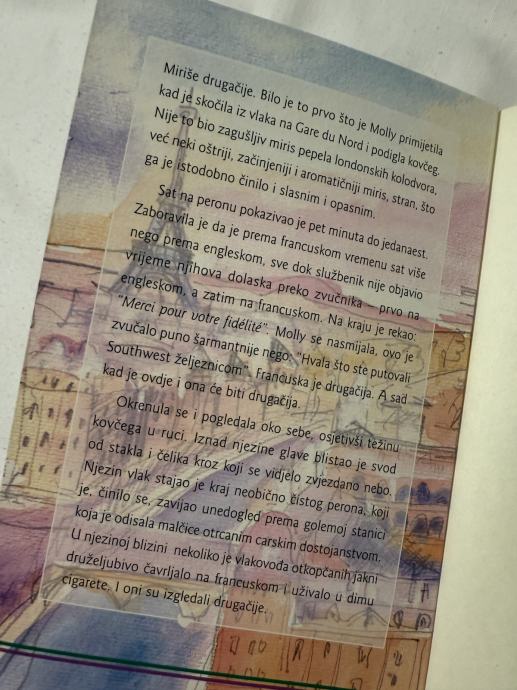 Miriše drugačije. Bilo je to prvo što je Molly primijetila
kad je skočila iz vlaka na Gare du Nord i podigla kovčeg.
Nije to bio zagušljiv miris pepela londonskih kolodvora,
već neki oštriji, začinjeniji i aromatičniji miris, stran, što
ga je istodobno činilo i slasnim i opasnim.
Sat na peronu pokazivao je pet minuta do jedanaest.
Zaboravila je da je prema francuskom vremenu sat više
nego prema engleskom, sve dok službenik nije objavio
vrijeme njihova dolaska preko zvučnika – prvo na
engleskom, a zatim na francuskom. Na kraju je rekao:
"Merci pour votre fidélité". Molly se nasmijala, ovo je
zvučalo puno šarmantnije nego: "Hvala što ste putovali
Southwest željeznicom". Francuska je drugačija. A sad
kad je ovdje i ona će biti drugačija.
Okrenula se i pogledala oko sebe, osjetivši težinu
kovčega u ruci. Iznad njezine glave blistao je svod
od stakla i čelika kroz koji se vidjelo zvjezdano nebo.
Njezin vlak stajao je kraj neobično čistog perona, koji
je, činilo se, zavijao unedogled prema golemoj stanici
koja je odisala malčice otrcanim carskim dostojanstvom.
U njezinoj blizini nekoliko je vlakovođa otkopčanih jakni
druželjubivo čavrljalo na francuskom i uživalo u dimu
cigarete. I oni su izgledali drugačije.